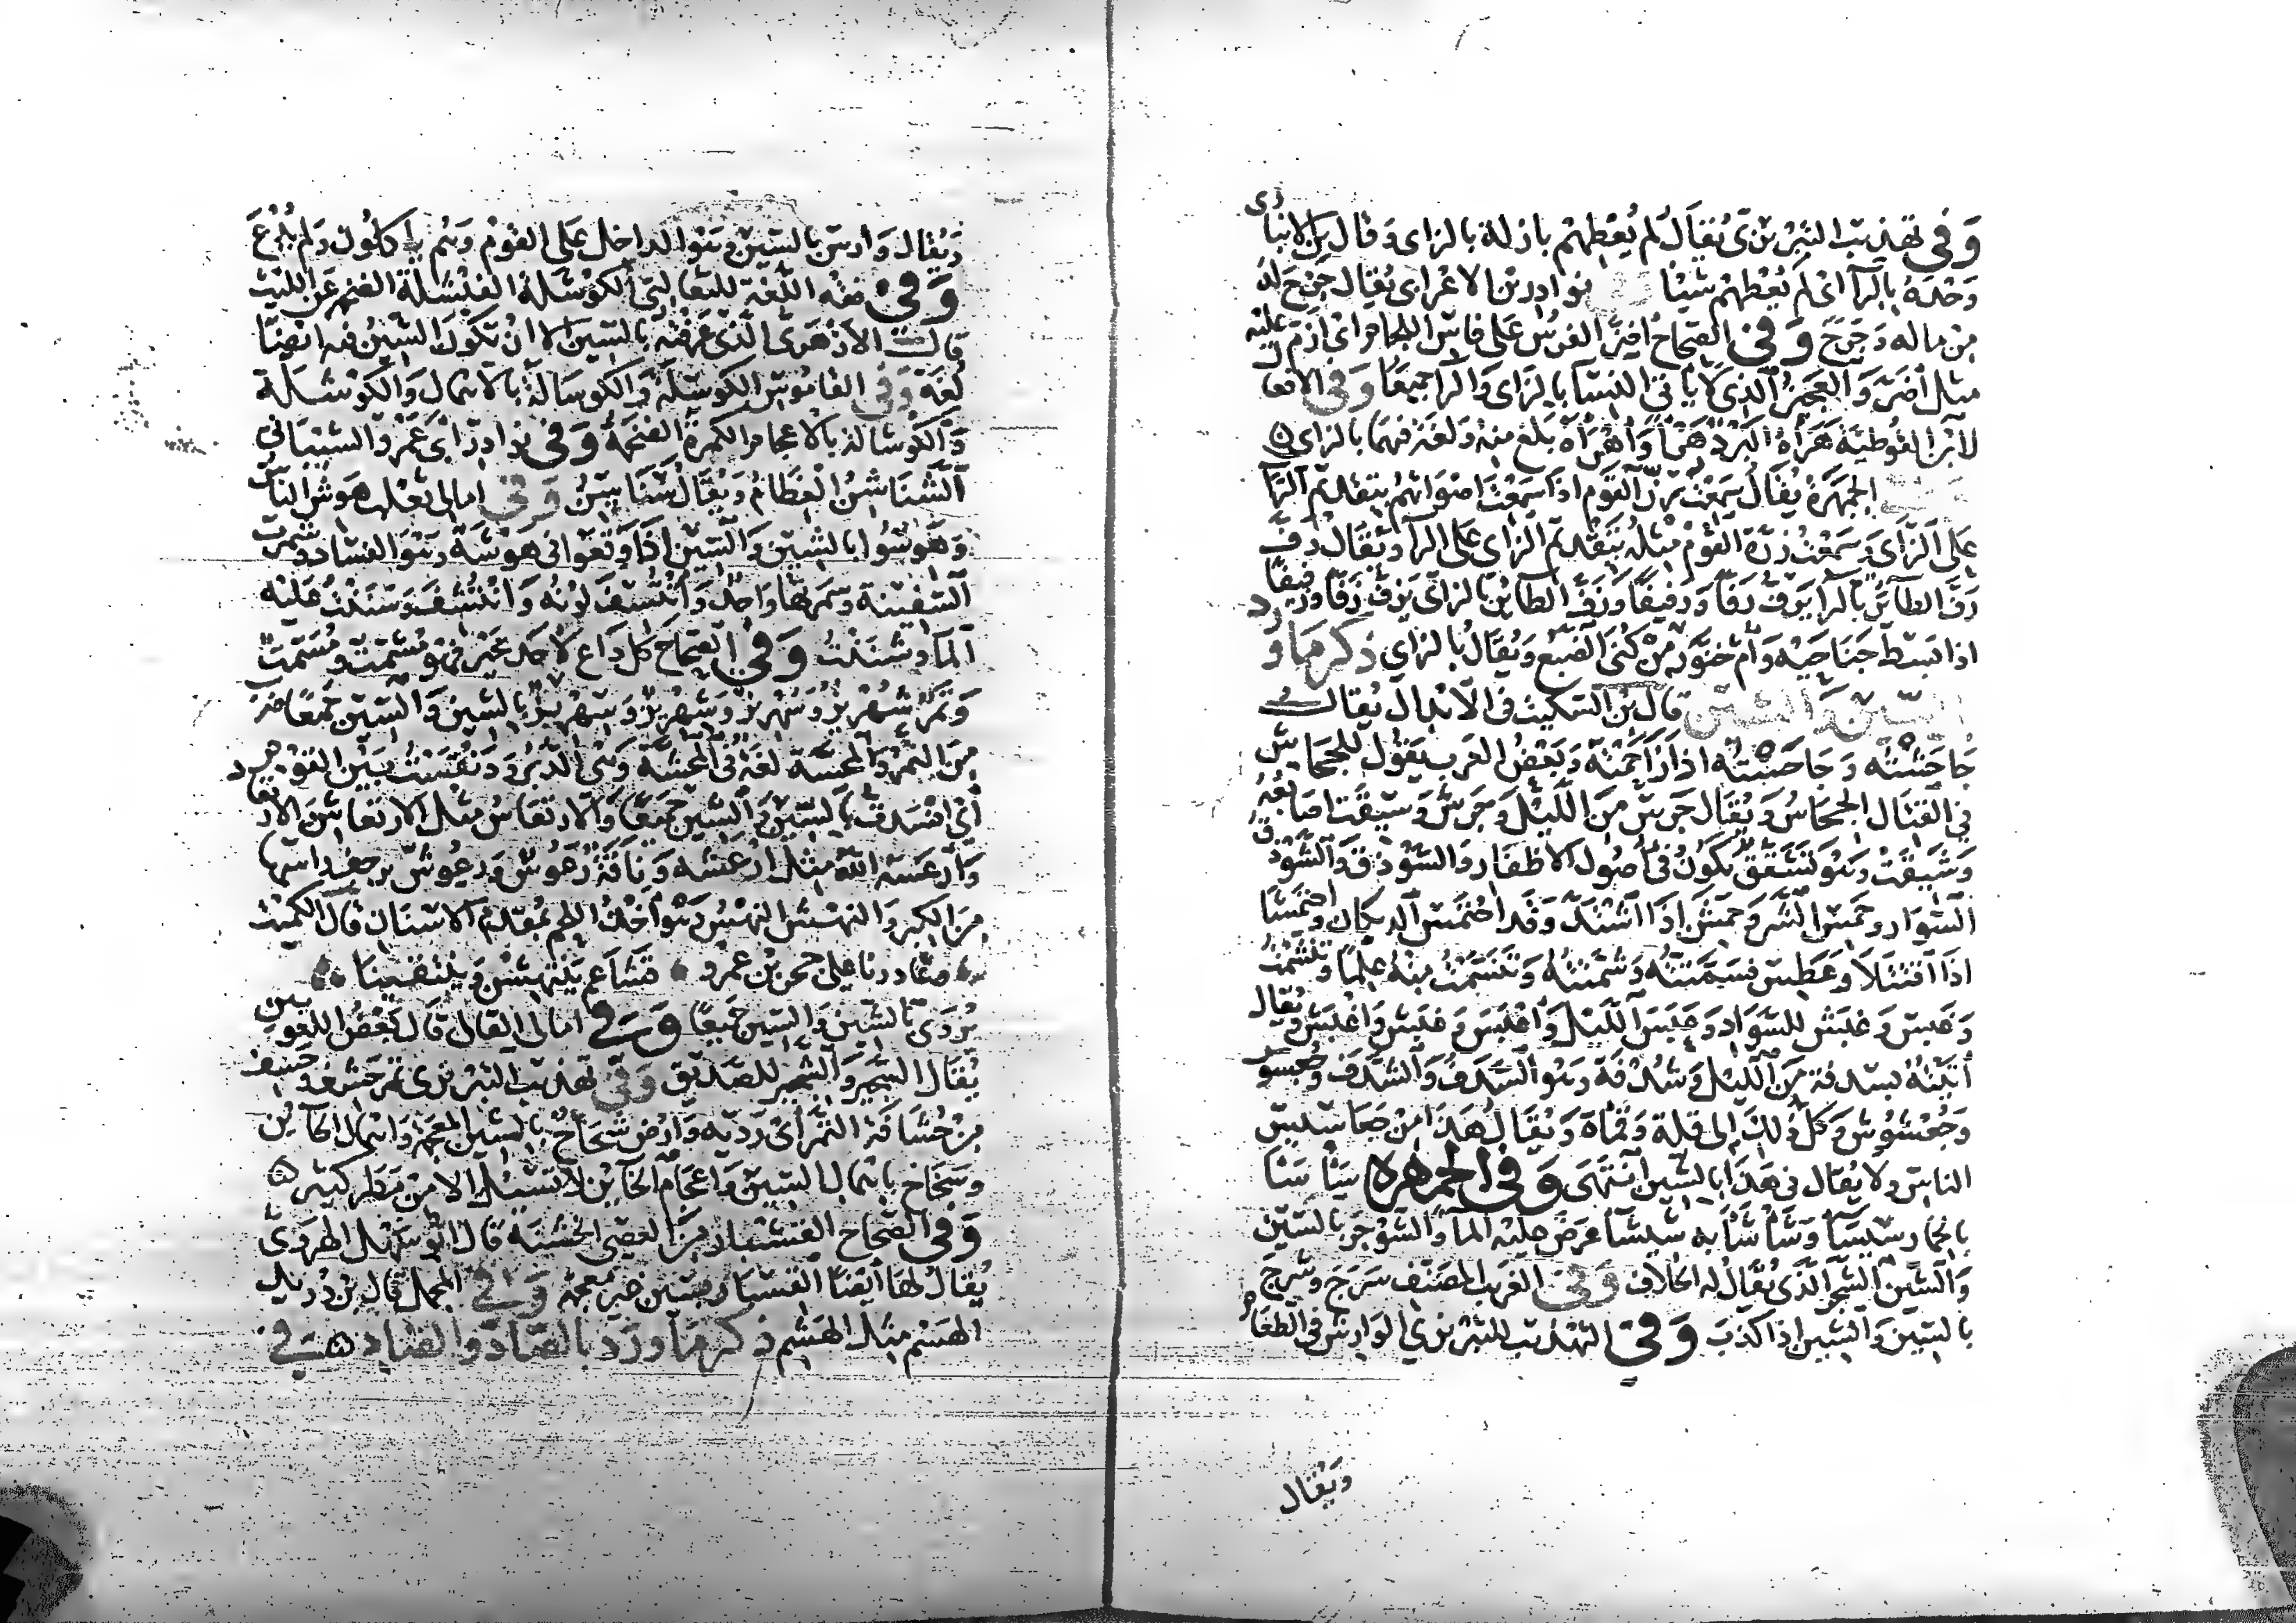 وَفي تهذيب التبريزى يُقال لم يُعْطِهم بازلة بالزاى وَقال بن الانبارى
وَحْدَهُ بالرآ اى لم يُعْطِهِمْ شيئا نوادر بن الاعرابى يُقال جَزَحَ لهُ
مِن ماله وَجَرَح وَفي الصحاح افرز الفرسُ على فاس اللجام اى ازَم عليْه
مثل أضزّ وَالعجيز الذى لا ياتى النسآ بالزاى وَالرا جميعًا وَفي الافعال
لابن القوطية هَرَأهُ البَرْدُ هَرْأً وَأهْرأه بَلغ منهُ وَلغة فيهما بالزاى
الجمهرة يُقال سَمِعْت رزّ القوم اذا سَمِعْتَ اصْوَاتهُم بتقديم الرا
على الزاى وَسَمِعْتُ زرّة القوْم مِثْلُه بتقديم الزاى على الرا وَيُقال رَفّ
رَفَّ الطآئر بالرا يَرفّ رَفّا وَرفيفًا وَزَفّ الطآئر بالزاى يَزف زفّا وزفيفًا
اذا بَسَط جَنَاحَيْه وَأم خنّور مِنْ كُنى الضبع وَيُقال بالزاي ذكر ما ورد
بالسّين وَالشين قال بن السّكيت في الابْدال يُقال
جَاحَشْتُه وَجَاحَسْتُه اذا زَاحَمْتَهُ وَبَعْضُ العَرب يَقُول للجحاش
في القتال الجحاسُ وَيُقال جَرسٌ مِن الليْل وَجَرشٌ وَسَئِفت اصَابعُهُ
وَشَئِفتْ وَهوَ تشَقّقٌ يَكُونُ في أصُول الاظفار وَالسّوْذق وَالشّوْذق
السّوَار وحَمِسَ الشّر وَحَمِشَ إذا اشْتدّ وَقد احْتمَسَ الديكان واحْتمَشَا
اذا اقتتلا وَعَطِس فسَمّتُّه وَشَمّتُّهُ وَتنسّمْتُ مِنْهُ عِلمًا وَتنشّمْتُ
وَغبَسٌ وَغبَشٌ للسّوَاد وَغَبَسَ الليْل وَأغْبَسَ وَغبَش وَاغْبَشَ وَيُقال
أتيْتُهُ بسدفة مِنَ الليْل وَشُدْفة وَهو السّدَفُ وَالشّدَف وَجُعْسُوس
وَجُعْشُوش وَكلّ ذلك إلى قلة وَقمأة وَيُقال هَذَا مِنْ جَعَاسيس
الناس ولا يُقال في هَذا بالشّين انتهَى وَفي الجمهرة سَأسَأ
بالحمار سئسآ وَشَأشَأ به شئشآ عَرَض عليْه المآ وَالسّوْجر بالسّين
وَالشّين الشّجر الذى يُقال له الخلاف وَفي الغريب المصنّف سَرجَ وشرجَ
بالسّين وَالشين اذا كذب وَفي التهذيب للتبريزي الوَارش في الطعَام
ويُقال
وَيُقال وَارس بالسّين وهوَ الداخل على القوْم وَهُم ياكلون وَلم يُدْعَ
وَفي فقه اللّغة للثعالبى الكوْشلة الفيشلة الضخمة عَن الليْث
قال الأزهرى الذى عَرفتهُ بالسّين الا ان تكون الشّين فيه ايضًا
لُغَة وَفي القاموس الكوسلة وَالكوسالة بالاهمال وَالكوشلة
وَالكوشالة بالاعجام الكمرة الضخمة وَفي نوادر ابى عَمْرو الشيْبانى
الشناشنُ العِظامُ وَيُقال سَنَاسِنُ وَفي امالى ثعلب هَوش الناس
وَهَوّسُوا بالشين وَالسّين اذا وَقعوا فى هَوْشة وَهوَ الفساد وشمّرت
السّفينة وَسمّرتها وَاحد وَانتُسِفَ لوْنُه وَانتُشف وَسَننتُ عليْه
المآ وشَننتُ وَفي الصحاح كل دَاع لاحد بخيْر فهو مُشمّت ومُسَمّتٌ
وَتمرٌ شُهْريز وَسُهْريز وَشِهْريز وَسِهْريز بالشين وَالسّين جميعًا ضربٌ
مِنَ التّمْر وَالمحسّة لغة في المحشّة وَهْي الدّبر وَدَنقسْتُ بيْن القوْم
أي افسَدت بالسّين وَالشين جَميعًا وَالارتعاس مِثل الارتعاش من الارتعاد
وَارعسَه اللّه مثل ارْعَشه وَناقة رَعُوس وَرعوش يرجف رَاسها
مِنَ الكبر وَالنهْش النهْس وَهْوَ أخذ اللحم بمُقدّم الاسنان قال الكميْت
وغادرنا على حجر بن عمرو قشاعم ينتهشن وَينتقينا
يُرْوَى بالشين وَالسّين جميعًا وَفي امالى القالى قال بَعْض اللغويين
يُقال السّجير وَالشجير للصّديق وَفي تهذيب التبريزى تمر حشف وحسيف
مِنْ حُسَافة التمر أى رَدّيه وَأرض شحاح بالشين المعجمة وَاهمال الحاين
وسَخاخ باهمال السّين وَاعجام الخاين لا تسيل الا مِنْ مَطر كثير
وَفي الصحاح القشبار مِنَ العِصى الخشنة قال ابو سَهْل الهرَوى
يُقال لهَا أيضا القسبار بسين غير معجمة وَفي المجمل قال بن دُريْد
الهسْم مثل الهشم ذكر ما ورَد بالصّاد والضاد في